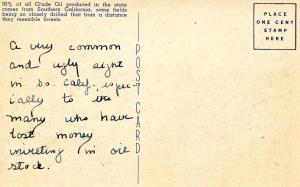 92% of all Crude Oil produced in the state
comes from Southern California, some fields
being so closely drilled that from a distance
they resemble forests.
PLACE
ONE CENT
STAMP
HERE
POST CARD
A very common
and ugly sight
in so. calif. espec-
ially to the
many who have
lost money
investing in oil
stock.